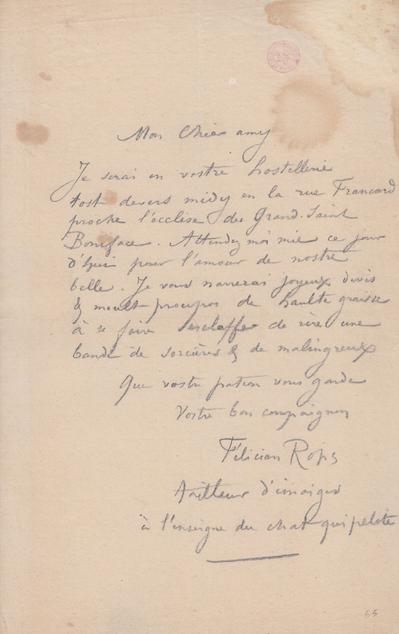 Mon Chier amy
Je serai en vostre hostellerie
tost devers midy en la rue Francard
proche l'ecclise du Grand-Saint
Boniface. Attendez moi mie ce jour
d'hui pour l'amour de nostre
belle. Je vous narrerai joyeux divis
& moult proupos de haulte graisse
à se faire esclaffer de rire une
bande de sorcières & de malingreux
Que vostre patron vous garde
Vostre bon compaignon
Félicien Rops
Tailleur d'imaiges
à l'enseigne du chat qui pelote
65